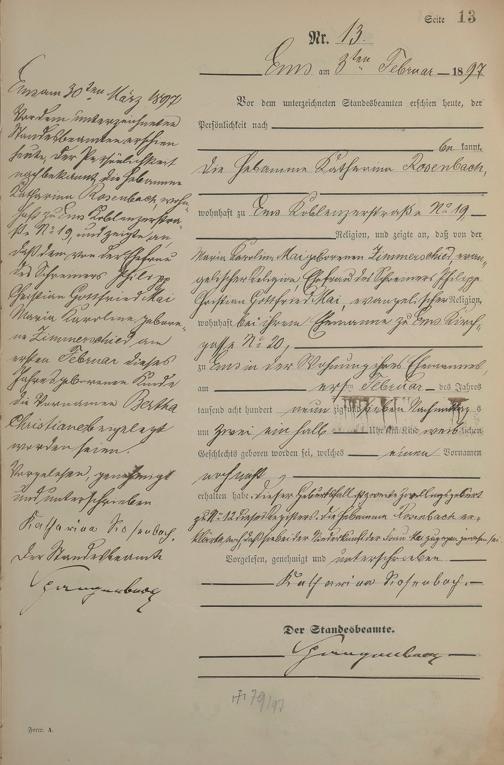 Seite 13
Nr. 13.
Ems am 3ten Februar 1897
Vor dem unterzeichneten Standesbeamten erschien heute, der
Persönlichkeit nach
bekannt,
die Hebamme Katharina Rosenbach,
wohnhaft zu Ems Koblenzerstraße No 19
Religion, und zeigte an, daß von der
Maria Karoline Mai geborenen Zimmerschied, evan-
gelischer Religion Ehefrau des Schreiners Philipp
Christian Gottfried Mai, evangelischer Religion,
wohnhaft bei ihrem Ehemanne zu Ems Kirch-
gasse No 20,
zu Ems in der Wohnung ihres Ehemannes,
am ersten Februar des Jahres
tausend acht hundert neunzig und sieben Nachmittags
um zwei ein halb Uhr ein Kind weiblichen
Geschlechts geboren worden sei, welches einen Vornamen
noch nicht
erhalten habe. Dieser Geburtsfall ist zweite Zwillingsgeburt
zu No 12 dieses Registers. Die Hebamme Rosenbach er-
klärte, daß sie bei der Niederkunft der Frau Mai zugegen gewesen sei.
Vorgelesen, genehmigt und unterschrieben
Katharina Rosenbach.
Der Standesbeamte.
Ems am 30ten März 1897
Vor dem unterzeichneten
Standesbeamten erschien
heute, der Persönlichkeit
nach bekannt, die Hebamme
Katharina Rosenbach, wohn-
haft zu Ems Koblenzerstra-
ße No 19, und zeigte an,
daß dem, von der Ehefrau
des Schreiners Philipp
Christian Gottfried Mai
Maria Karoline, gebore-
ne Zimmerschied am
ersten Februar dieses
Jahres geborenen Kinde
die Vornamen Bertha
Christiane beigelegt
worden seien.
Vorgelesen, genehmigt
und unterschrieben
Katharina Rosenbach.
Der Standesbeamte
79/97
Form. A.